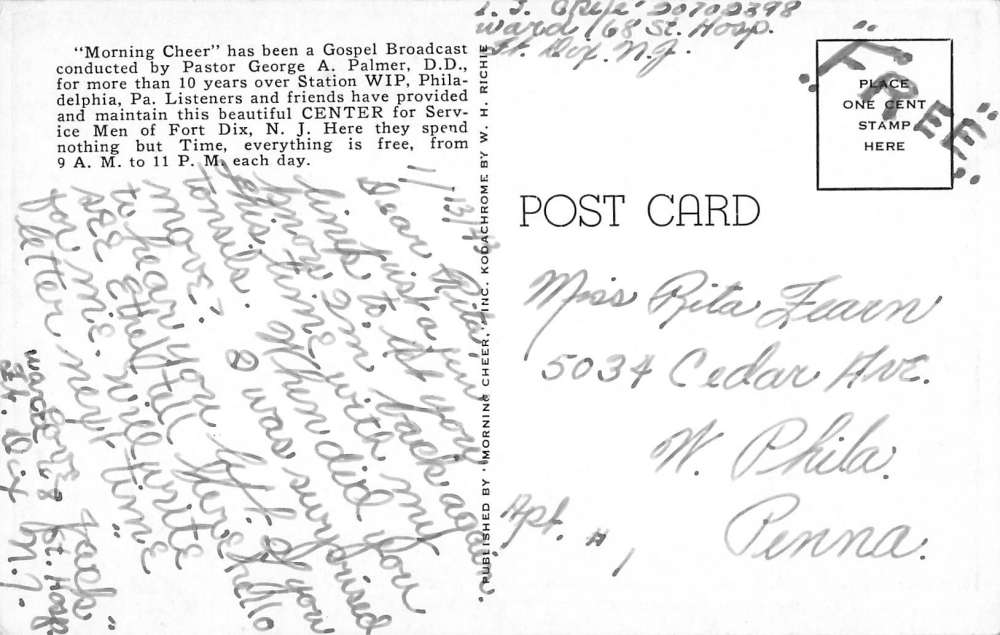 "Morning Cheer" has been a Gospel Broadcast
conducted by Pastor George A. Palmer, D.D.,
for more than 10 years over Station WIP, Phila-
delphia, Pa. Listeners and friends have provided
and maintain this beautiful CENTER for Serv-
ice Men of Fort Dix, N. J. Here they spend
nothing but Time, everything is free, from
9 A. M. to 11 P. M. each day.
1/13/43
Dear Rita,
Just a few
lines to let you
know I'm back again.
This time with my
tonsils. When did you
move? I was surprised
to hear you did. If you
see Ethel tell her hello
for me. Will write
letter next time.
Love,
"Jack"
ward 68 St. Hosp
Ft. Dix N.J.
PUBLISHED BY "MORNING CHEER," INC. KODACHROME BY W. H. RICHIE
20702398
ward 68 St. Hosp.
Ft. Dix, N.J.
"FREE"
PLACE
ONE CENT
STAMP
HERE
POST CARD
Miss Rita Fearn
5034 Cedar Ave.
W. Phila.
Apt. #1
Penna.